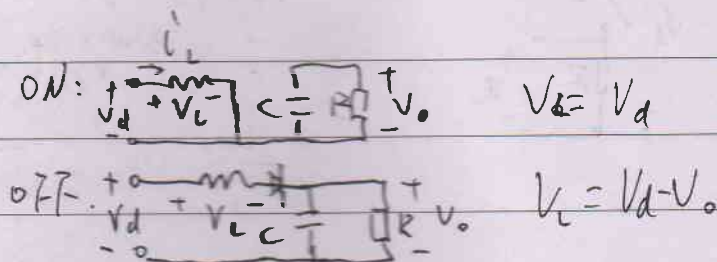 i_L
ON: + V_d - + V_L - C R + V_o - V_L = V_d
OFF. + V_d - + V_L - C R + V_o - V_L = V_d - V_o